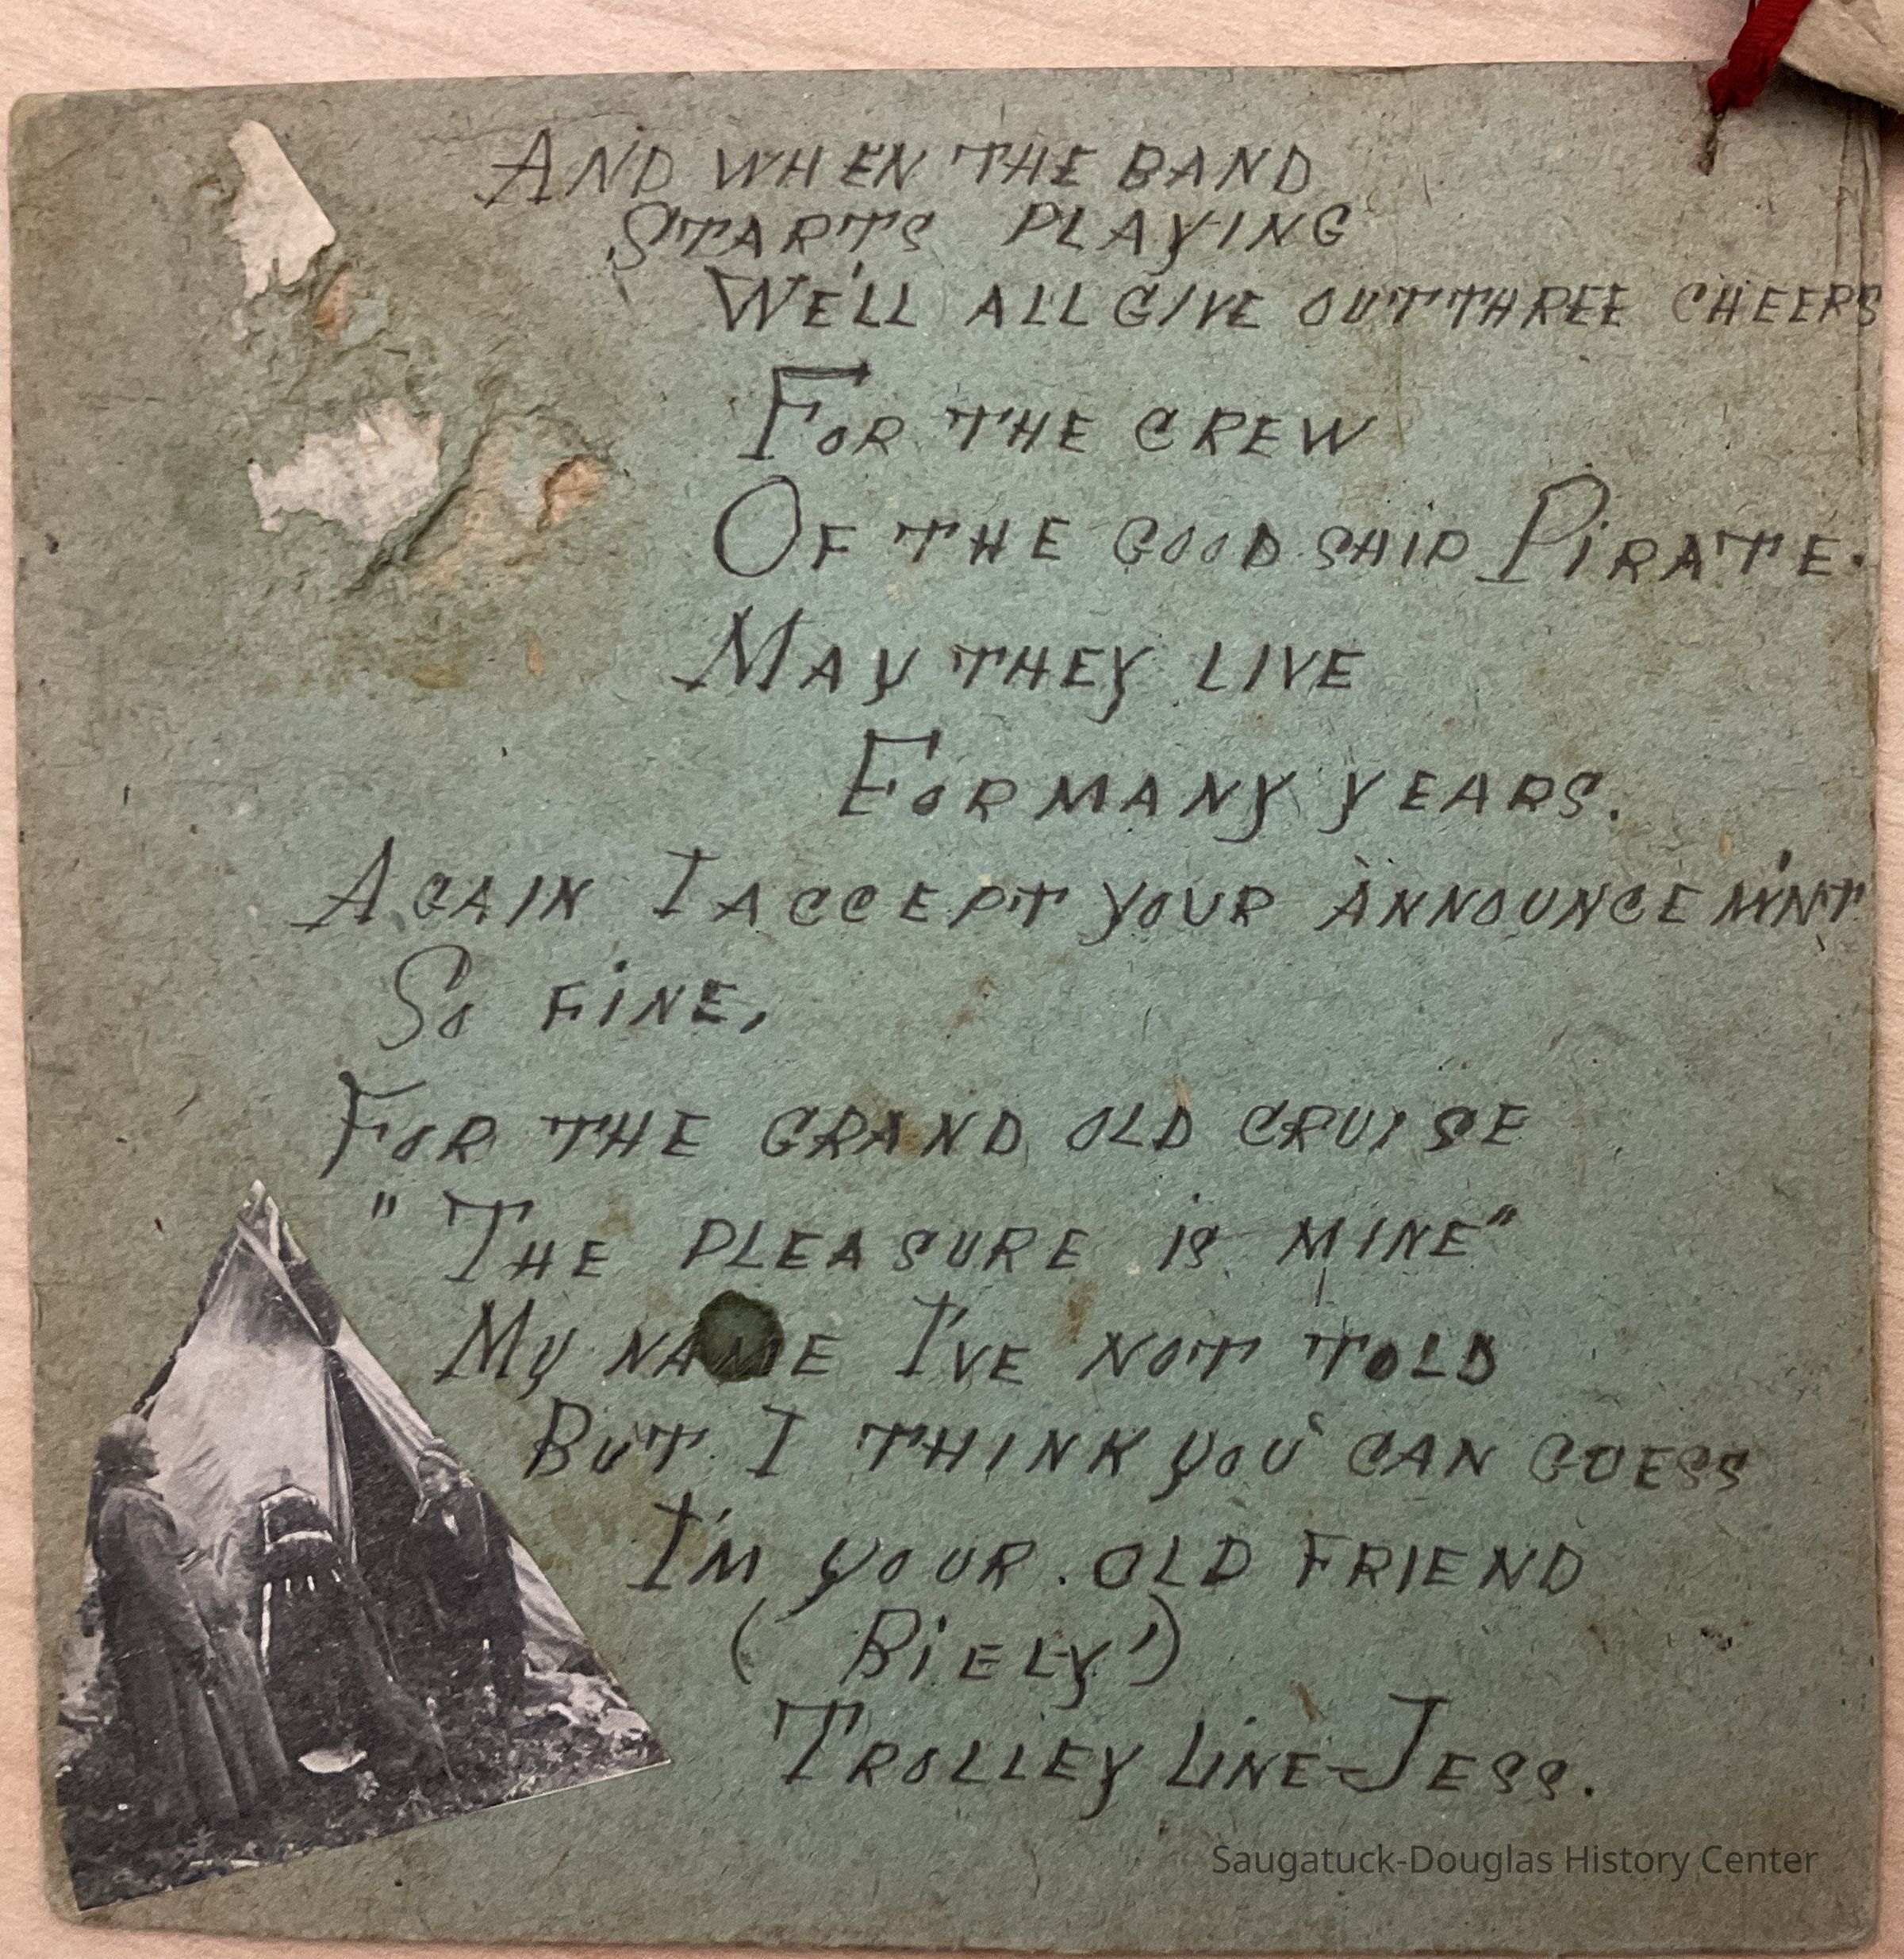 AND WHEN THE BAND
STARTS PLAYING
WE'LL ALL GIVE OUT THREE CHEERS
FOR THE CREW
OF THE GOOD SHIP PIRATE.
MAY THEY LIVE
FOR MANY YEARS.
AGAIN I ACCEPT YOUR ANNOUNCEM'NT
SO FINE,
FOR THE GRAND OLD CRUISE
"THE PLEASURE IS MINE"
MY NAME I'VE NOT TOLD
BUT I THINK YOU CAN GUESS
I'M YOUR OLD FRIEND
(BIELY')
TROLLEY LINE-JESS.
Saugatuck-Douglas History Center